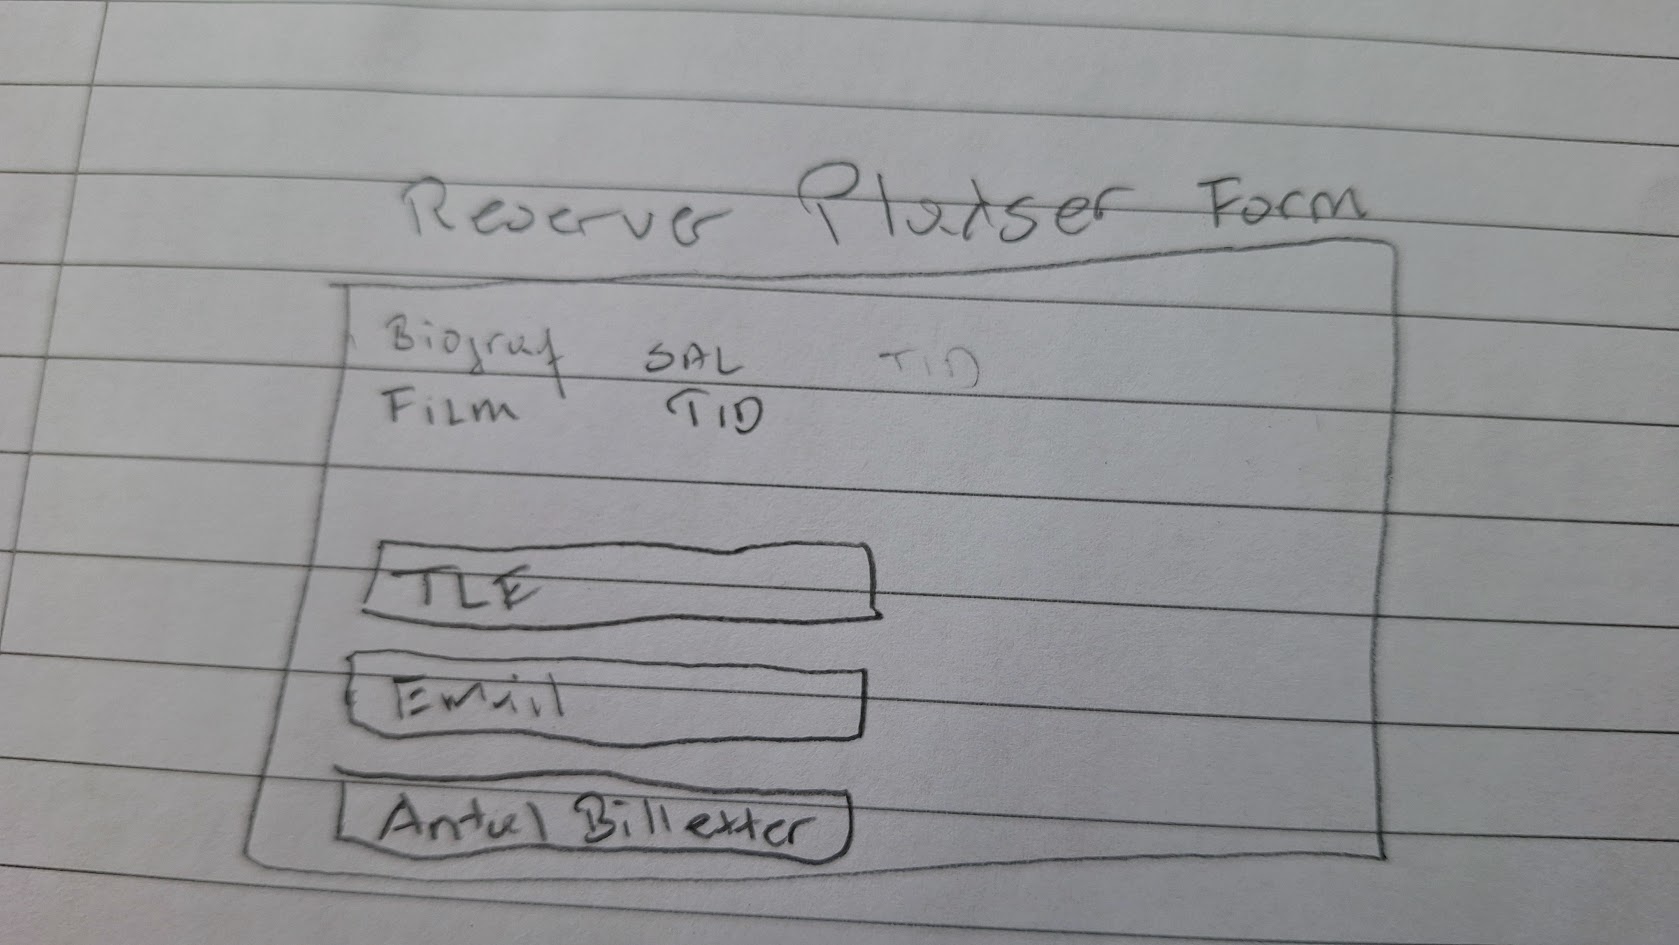 Reserver Pladser Form
Biograf SAL TID
FILM TID
TLF
Email
Antal Billetter